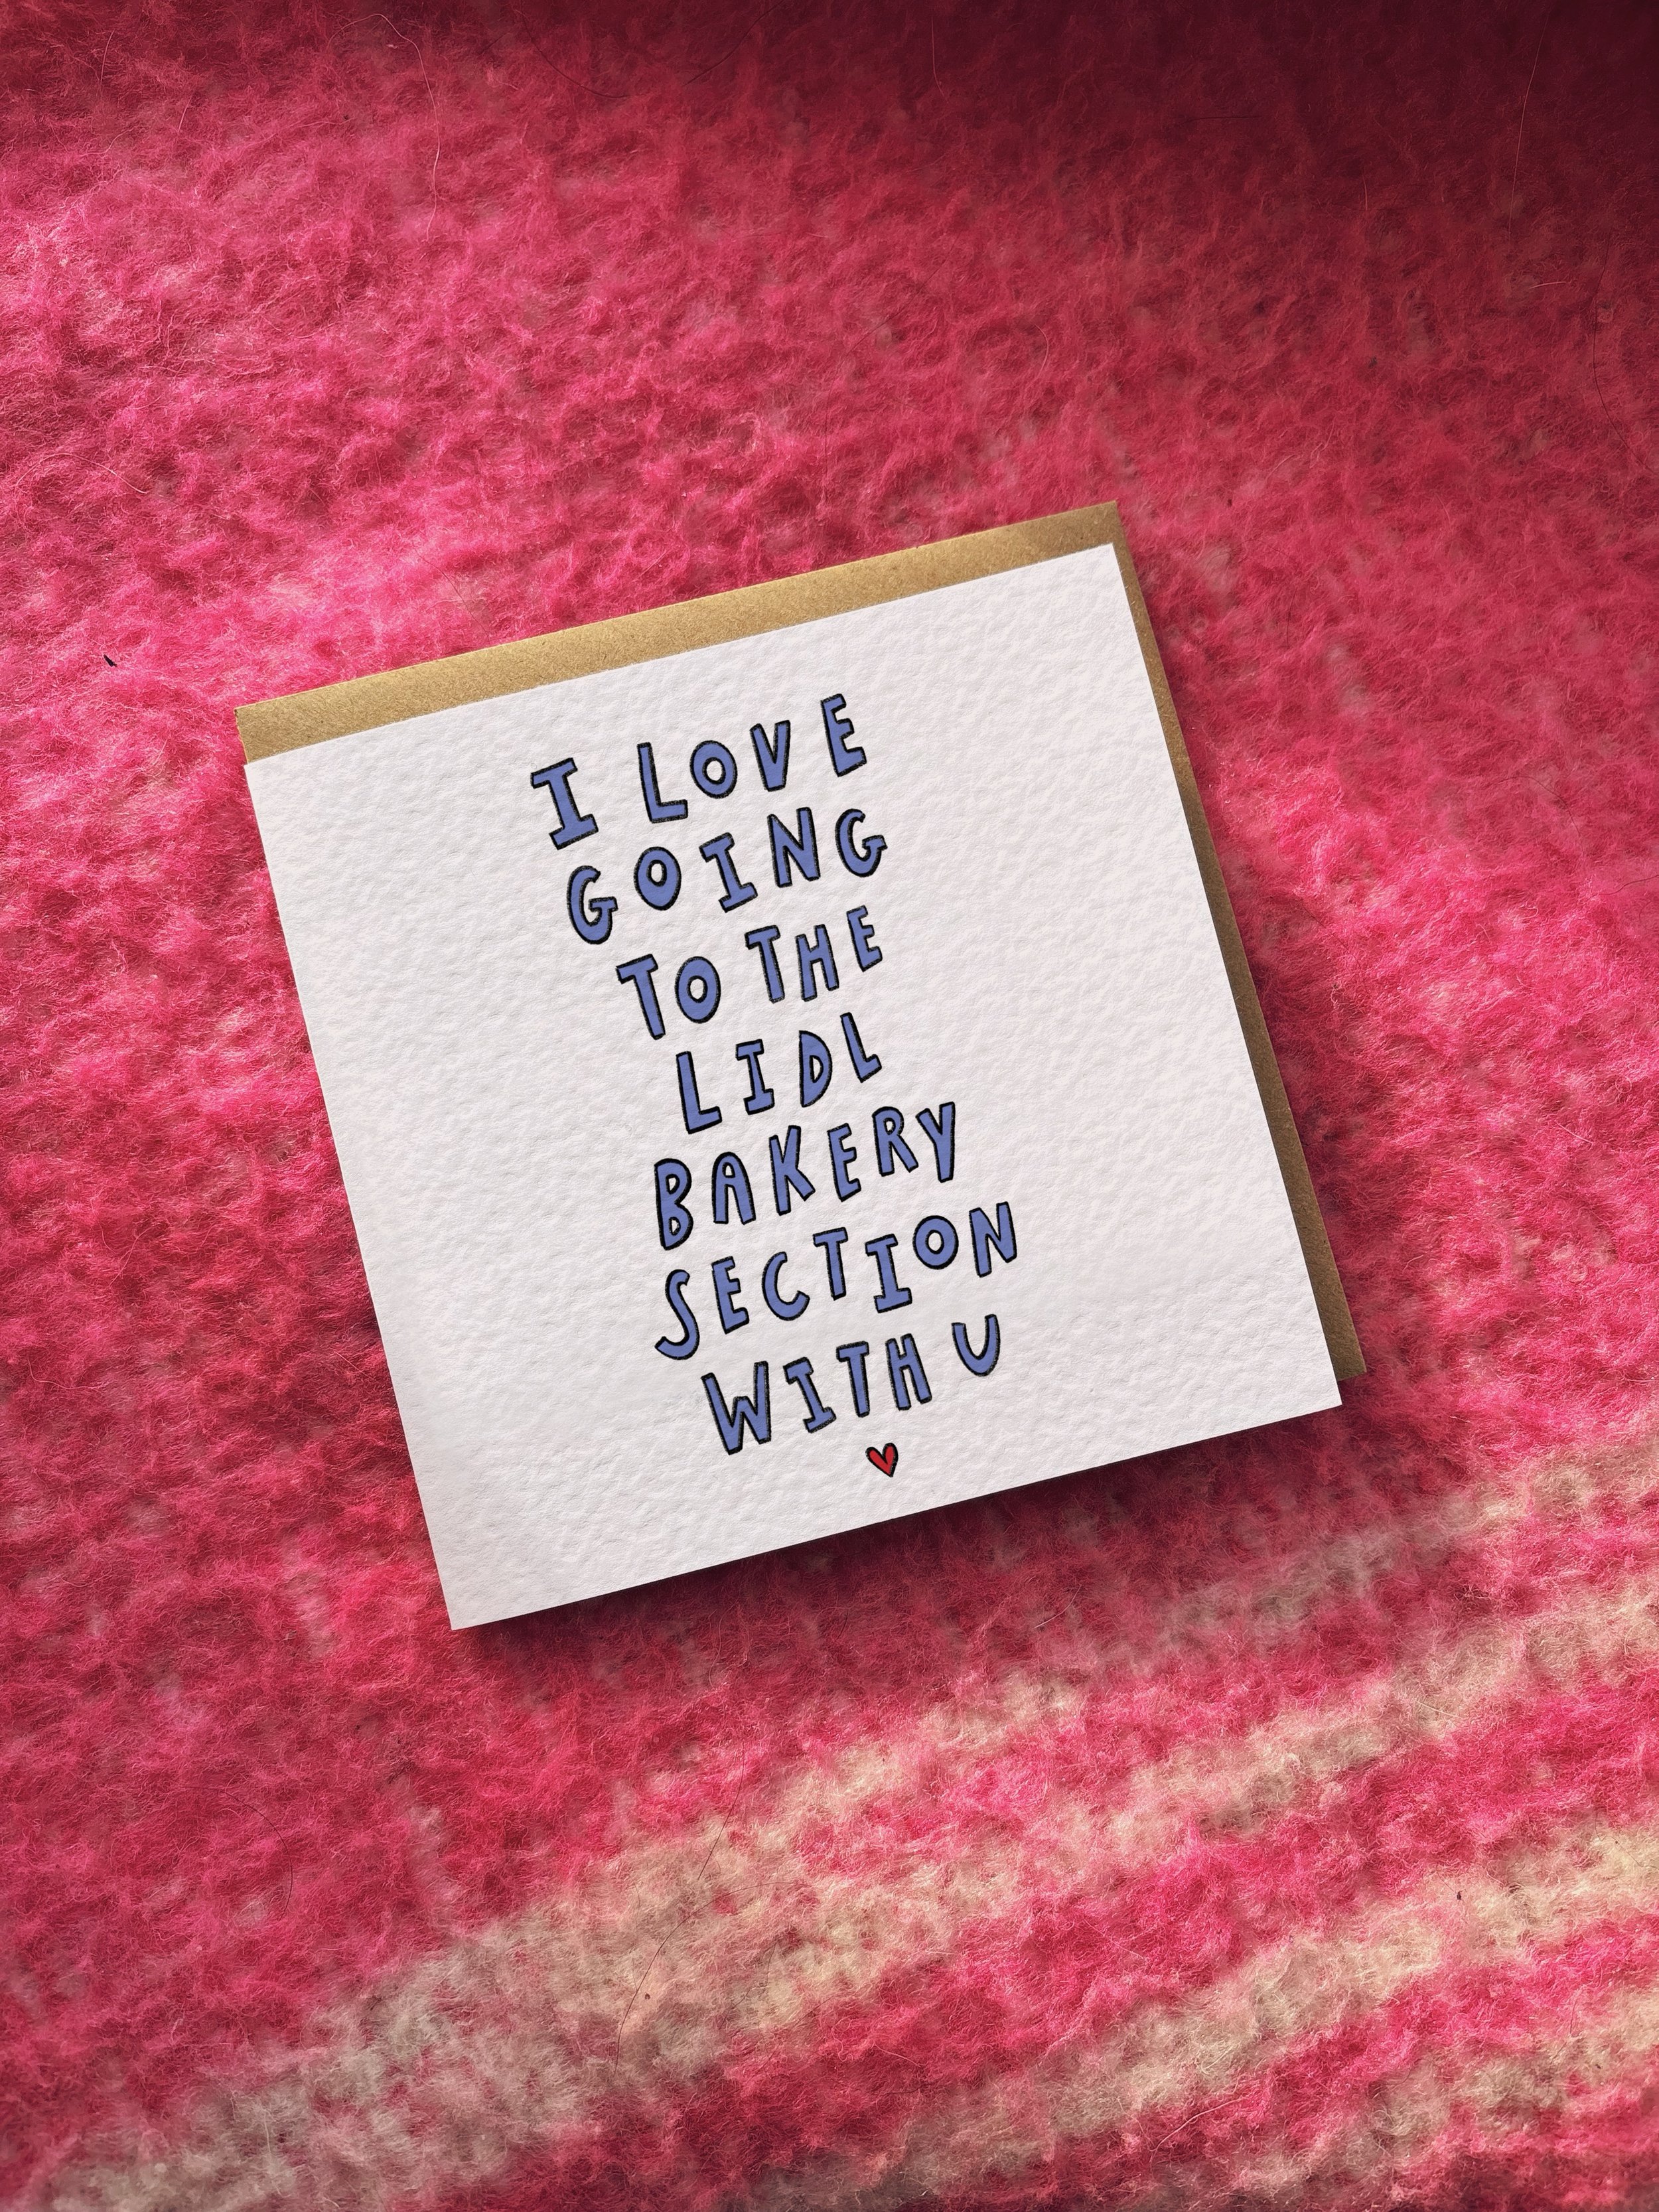 I LOVE
GOING
TO THE
LIDL
BAKERY
SECTION
WITH U